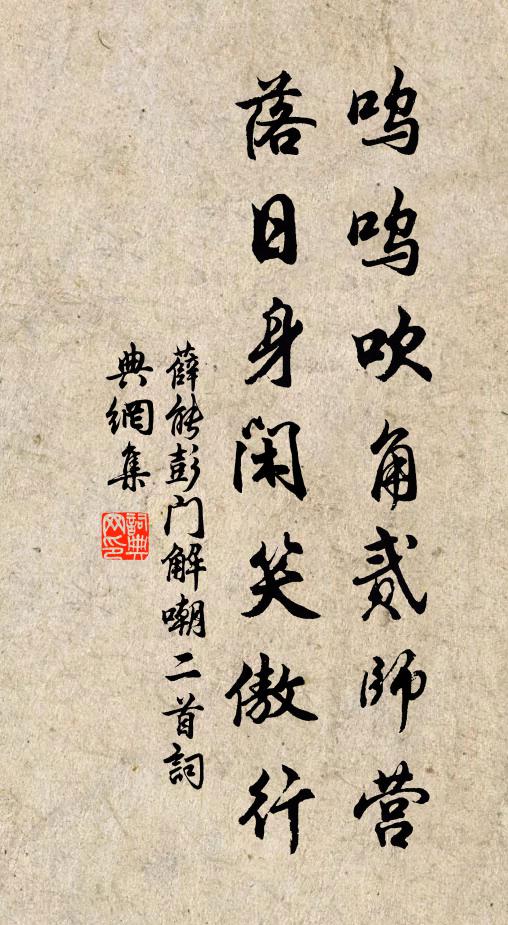 呜呜吹角贰师营
落日身闲笑傲行
薛能彭门解嘲二首詞
典網集
詞典网印